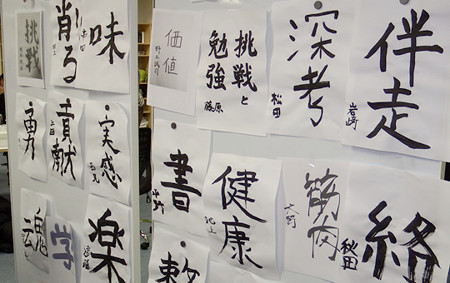 挑戦
削る
味
勇
貢献
実感
魂
学
楽
価値
挑戦と
勉強
藤原
深考
松田
伴走
岩崎
書
健康
池上
筋肉
大野
絡
秋田